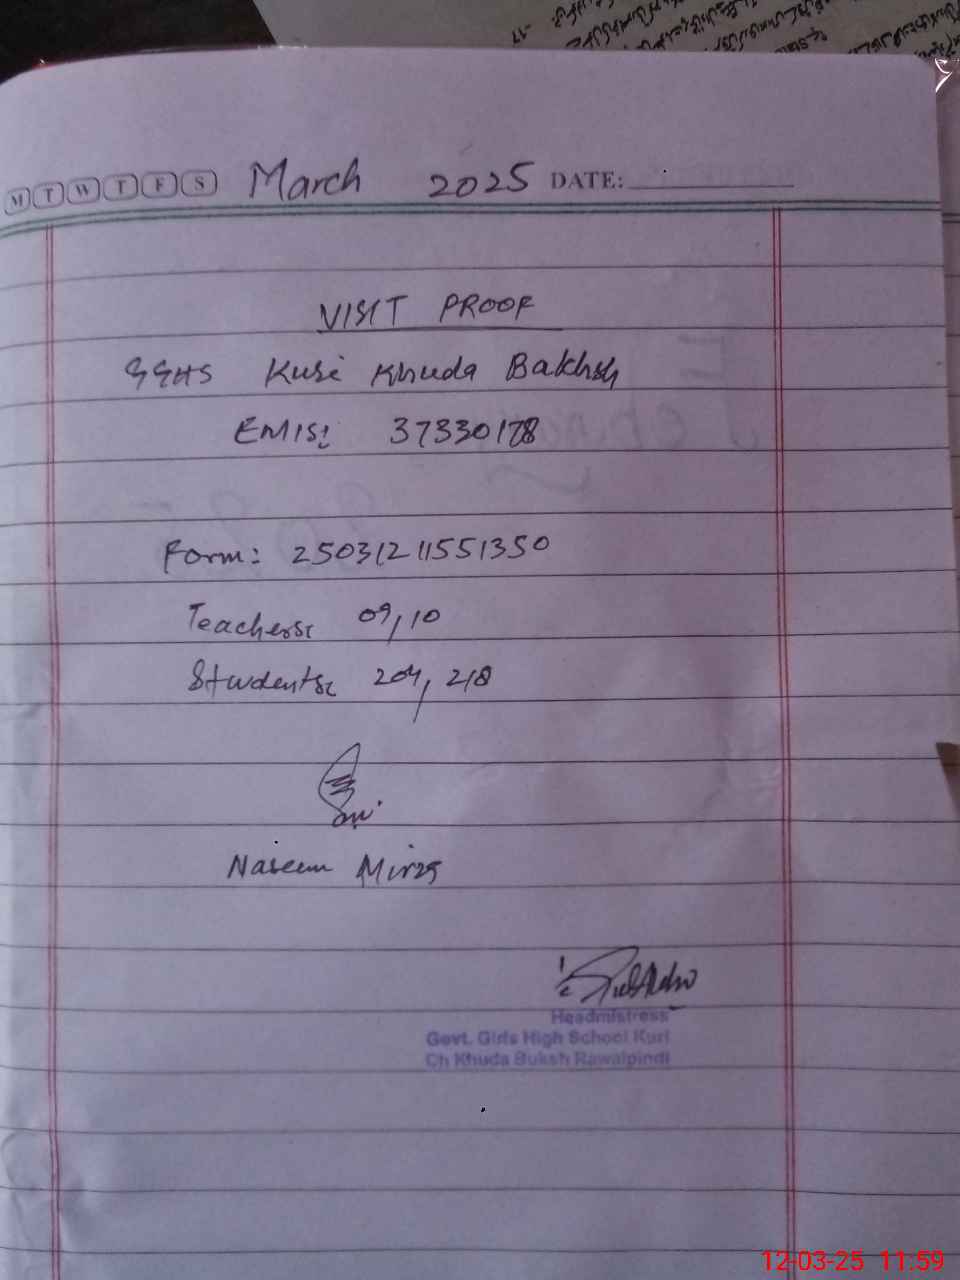 M T W T F S March 2025 DATE:
VISIT PROOF
GGHS Kuri Khuda Bakhsh
EMIS: 37330178
Form: 250312 11551350
Teachers: 09, 10
Students: 204, 218
Naseem Mirza
Headmistress
Govt. Girls High School Kuri
Ch Khuda Buksh Rawalpindi
12-03-25 11:59